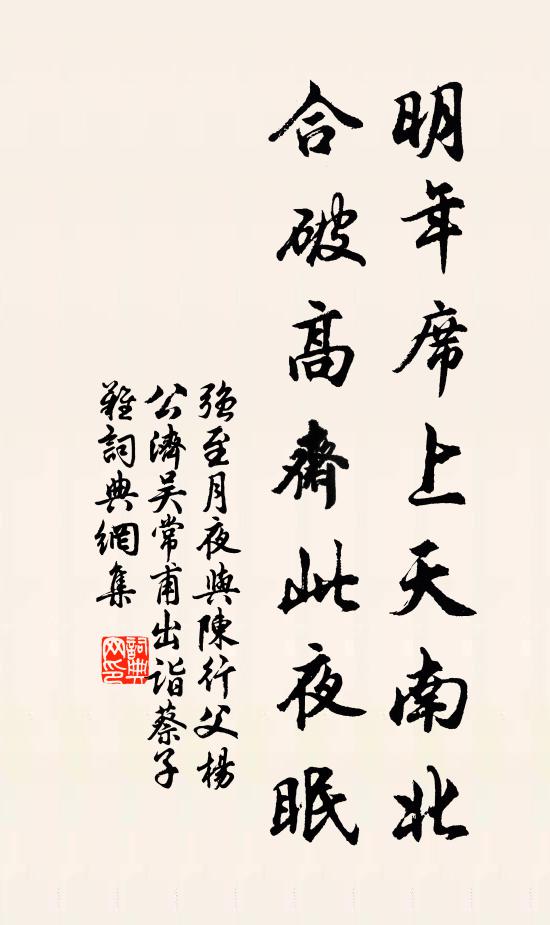 明年席上天南北
合破高齋此夜眠
強至月夜與陳行父楊
公濟吳常甫出詣蔡子
難詞典網集
詞典
网印